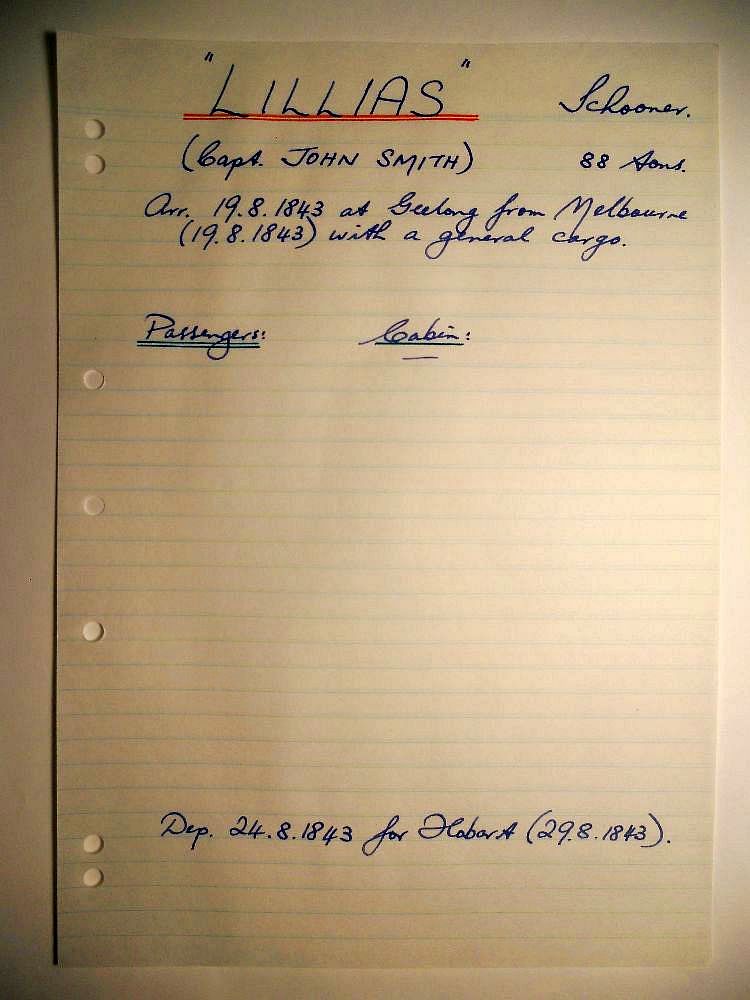 "LILLIAS" Schooner.
(Capt. JOHN SMITH) 88 tons.
Arr. 19.8.1843 at Geelong from Melbourne
(19.8.1843) with a general cargo.
Passengers: Cabin:
—
Dep. 24.8.1843 for Hobart (29.8.1843).